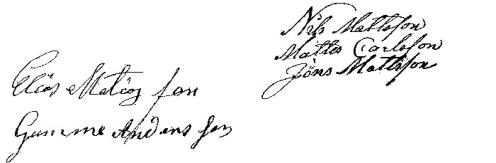 Nils Mattsson
Mattes Carlsson
Jöns Mattsson
Eliás Matiæs son
Gumme Anders son